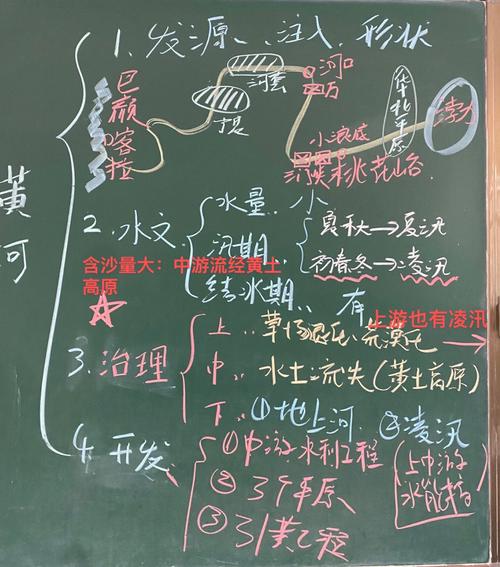 黄河
1、发源、注入、形状
巴颜喀拉
河套
河口
华北平原
渤
小浪底
桃花峪
2、水文
水量、小
汛期
夏秋→夏汛
初春冬→凌汛
结冰期、有
含沙量大：中游流经黄土
高原
上游也有凌汛
3、治理
上、草场退化、荒漠化
中、水土流失(黄土高原)
下、①地上河、②凌汛
4、开发
①中游水利工程
(上中游
水能
②3个平原
③引黄工程